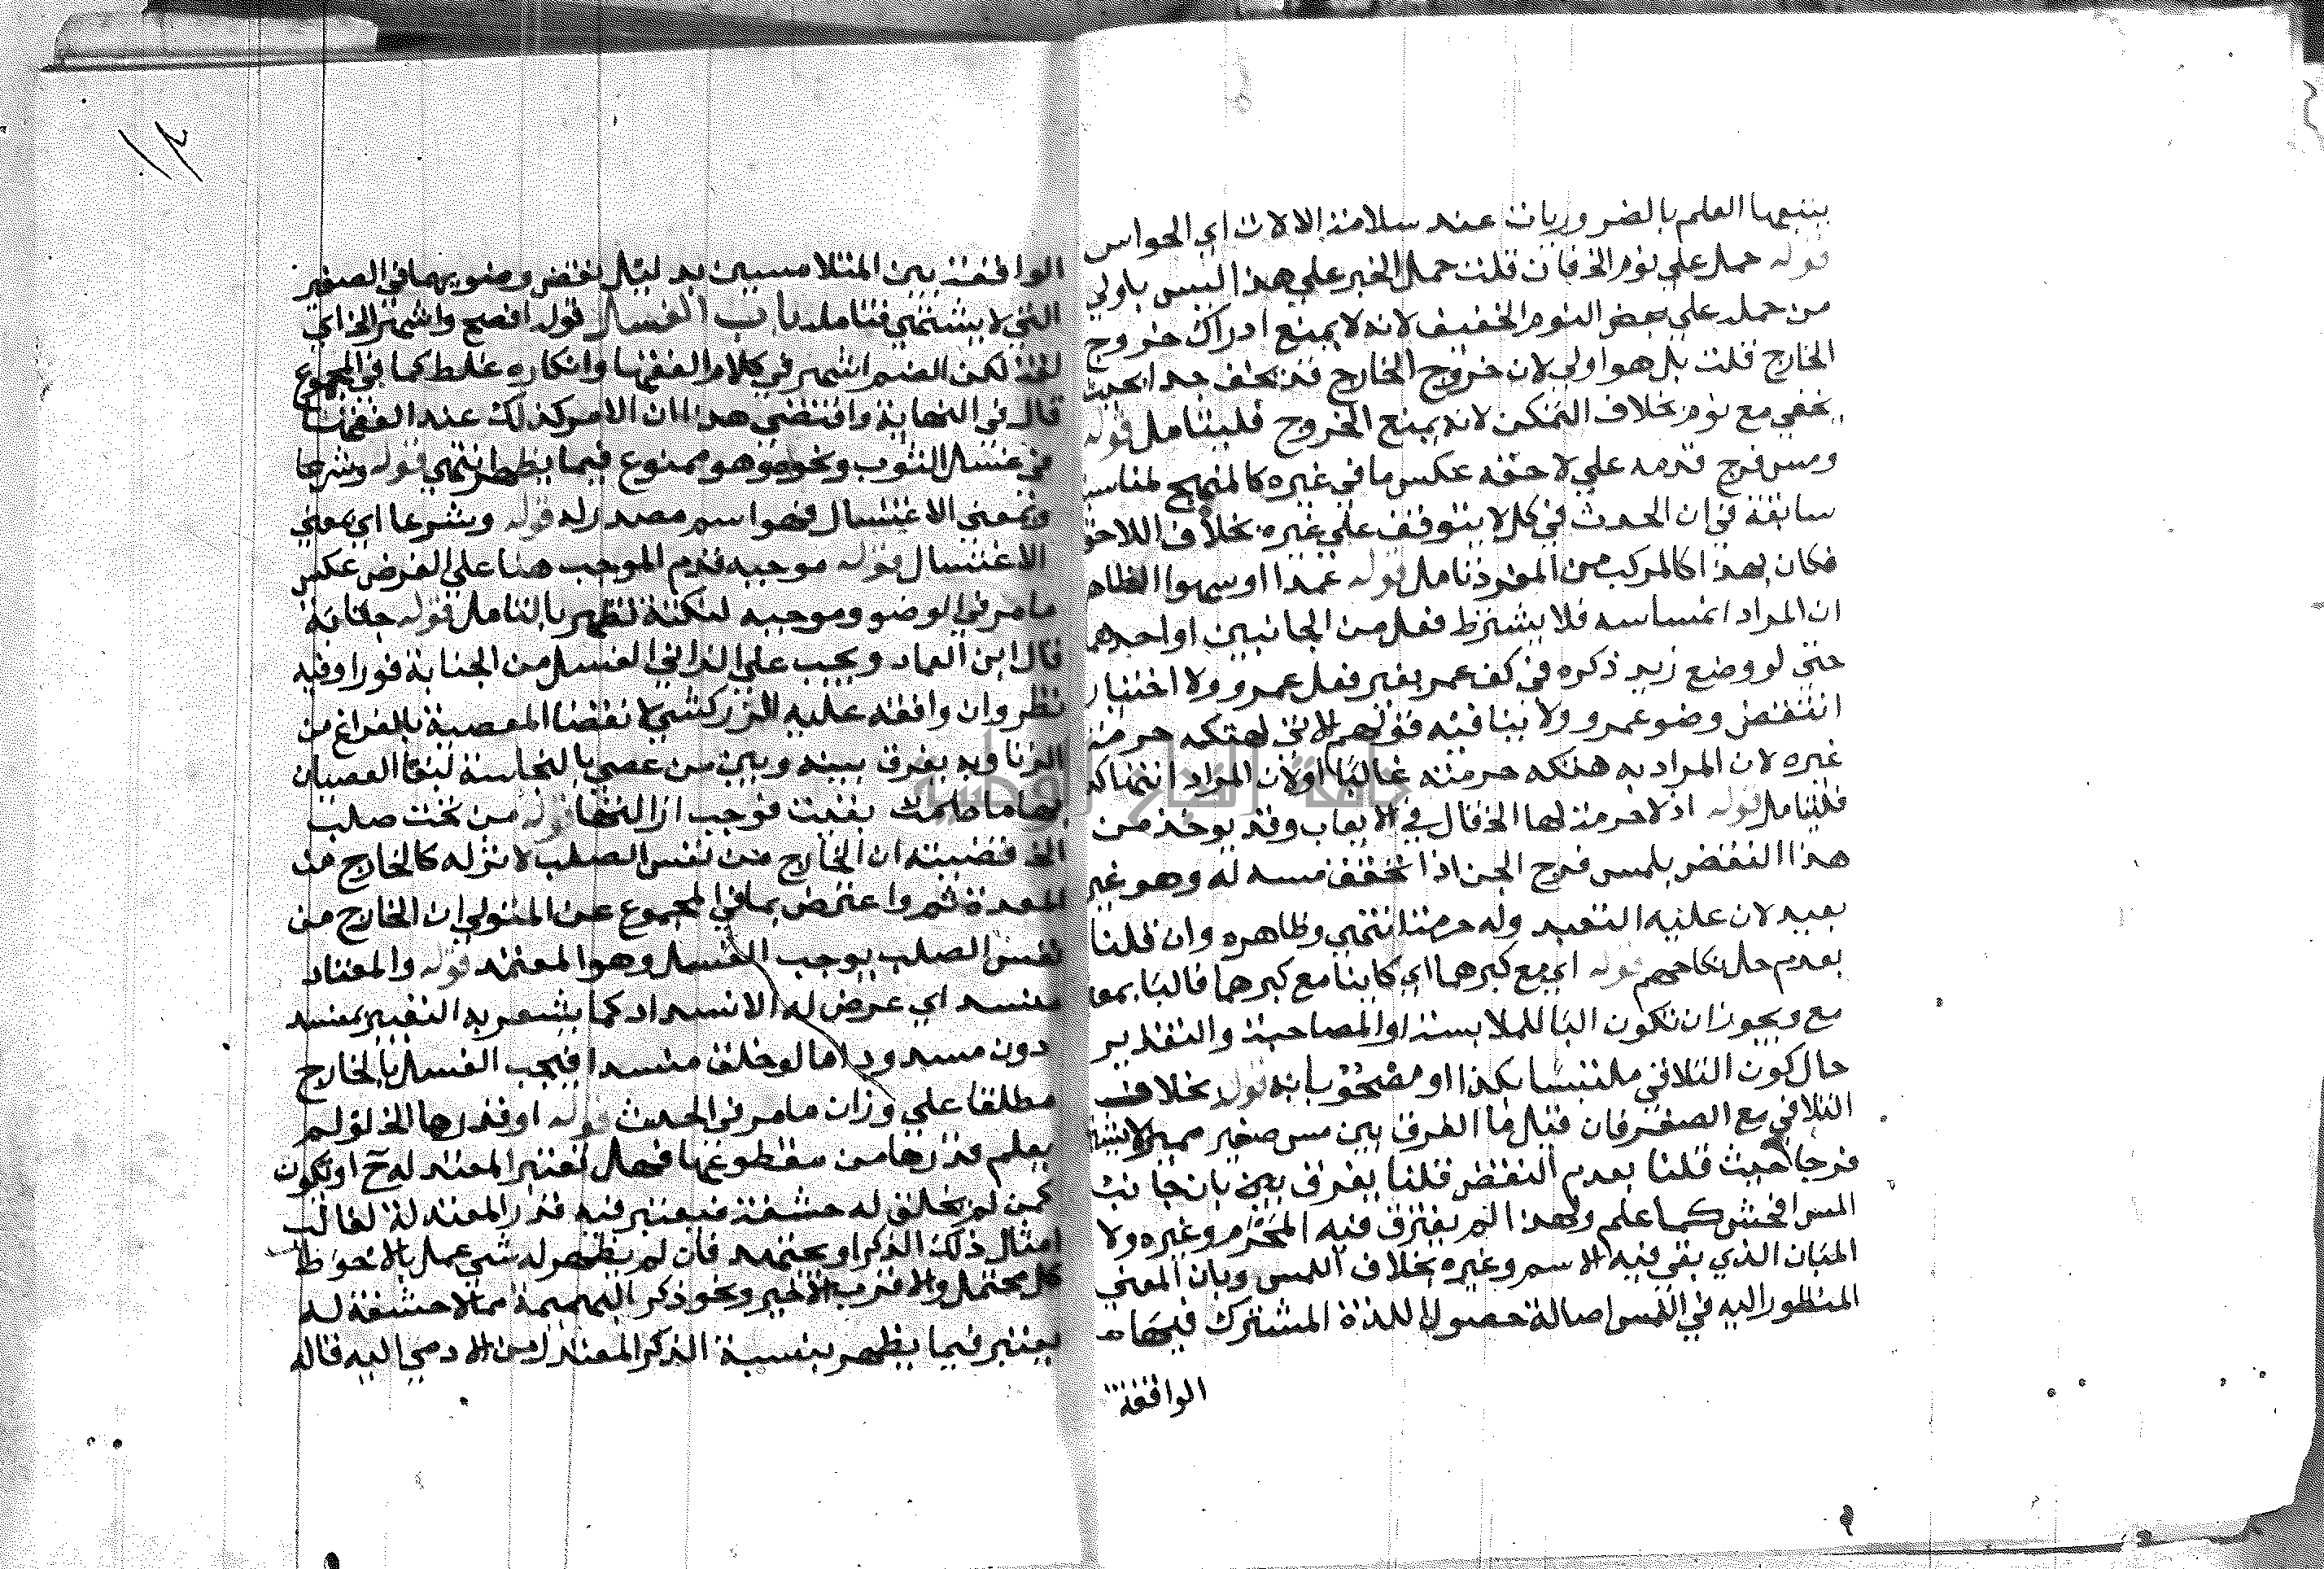 يتبعها العلم بالضروريات عند سلامة الالات اي الحواس
قوله حمل علي نوم الخ فان قلت حمل الخبر علي هذا ليس باولي
من حمله علي بعض النوم الخفيف لانه لا يمنع ادراك خروج
الخارج قلت بل هو اولي لان خروج الخارج قد يخف جدا بحيث
يخفي مع نوم بخلاف التمكن لانه يمنع الخروج فليتامل قوله
ومس فرج قدمه علي لاحقه عكس ما في غيره كالمنهج لمناسبة
سابقة في ان الحدث في كل لا يتوقف علي غيره بخلاف اللاحق
فكان بهذا كالمركب من المفرد تامل قوله عمدا او سهوا الظاهر
ان المراد انمساسه فلا يشترط فعل من الجانبين او احدهما
حتي لو وضع زيد ذكره في كف عمر بغير فعل عمرو ولا اختيار
انتقض وضو عمرو ولا ينافيه قولهم لانه لهتكه حرمة
غيره لان المراد به هتكه حرمته غالبا او لان المراد انتهاكه
فليتامل قوله اذ لا حرمة لها الخ قال في الايعاب وقد يوخذ من
هذا النقض بلمس فرج الجن اذا تحقق مسه له وهو غير
بعيد لان عليه التعبد وله حرمة انتهي وظاهره وان قلنا
بعدم حل نكاحهم قوله اي مع كبرهما اي كاينا مع كبرهما فالبا بمعني
مع ويجوز ان تكون البا للملابسة او المصاحبة والتقدير
حال كون التلاقي ملتبسا بكذا او مصحوبا به قوله بخلاف
التلاقي مع الصغر فان قيل ما الفرق بين مس صغير مميز لا يشتهي
فرجا حيث قلنا بعدم النقض قلنا يفرق بين بان جانب
المس افحش كما علم ولهذا لم يفترق فيه المحرم وغيره ولا
المبان الذي بقي فيه الاسم وغيره بخلاف اللمس وبان المعني
المنظور اليه في اللمس اصالة حصول اللذة المشترك فيها
الواقعة
١٢
الواقعة بين المتلامسين بدليل نقض وضويهما في الصغير
التي لا يشتهي فتامله باب الغسل قوله افصح واشهر الخ اي
لغة لكن الضم اشهر في كلام الفقها وانكاره غلط كما في المجموع
قال في النهاية واقتضي هذا ان الامر كذلك عند الفقها
في غسل الثوب ونحوه وهو ممنوع فيما يظهر انتهي قوله وشرعا
وبمعني الاغتسال فهو اسم مصدر له قوله وشرعا اي بمعني
الاغتسال قوله موجبه قدم الموجب هنا علي الفرض عكس
ما مر في الوضو وموجبه لنكتة تظهر بالتامل قوله جنابة
قال ابن العماد ويجب علي الزاني الغسل من الجنابة فورا وفيه
نظر وان وافقه عليه الزركشي لانقضا المعصية بالفراغ من
الزنا وبه يفرق بينه وبين من عصي بالنجاسة لبقا العصيان
بها ما دامت بقيت فوجب ازالتها قوله من تحت صلب
الخ قضيته ان الخارج من نفس الصلب لا نزله كالخارج من
المعدة ثم واعترض بما في المجموع عن المتولي ان الخارج من
نفس الصلب يوجب الغسل وهو المعتمد قوله والمعتاد
منسد اي عرض له الانسداد كما يشعر به التعبير بمنسد
دون مسدود اما لو خلق منسدا فيجب الغسل بالخارج
مطلقا علي وزان ما مر في الحدث قوله او قدرها الخ لو لم
يعلم قدرها من مقطوعها فهل تعتبر المعتدلة ح او تكون
كمن لم يخلق له حشفة فيعتبر فيه قدر المعتدلة لغالب
امثال ذلك الذكر او يجتهد فان لم يظهر له شي عمل بالاحوط
كل محتمل والاقرب الاخير ونحو ذكر البهيمة مما لا حشفة له
يعتبر فيما يظهر بنسبة الذكر المعتدل من الادمي اليه قاله